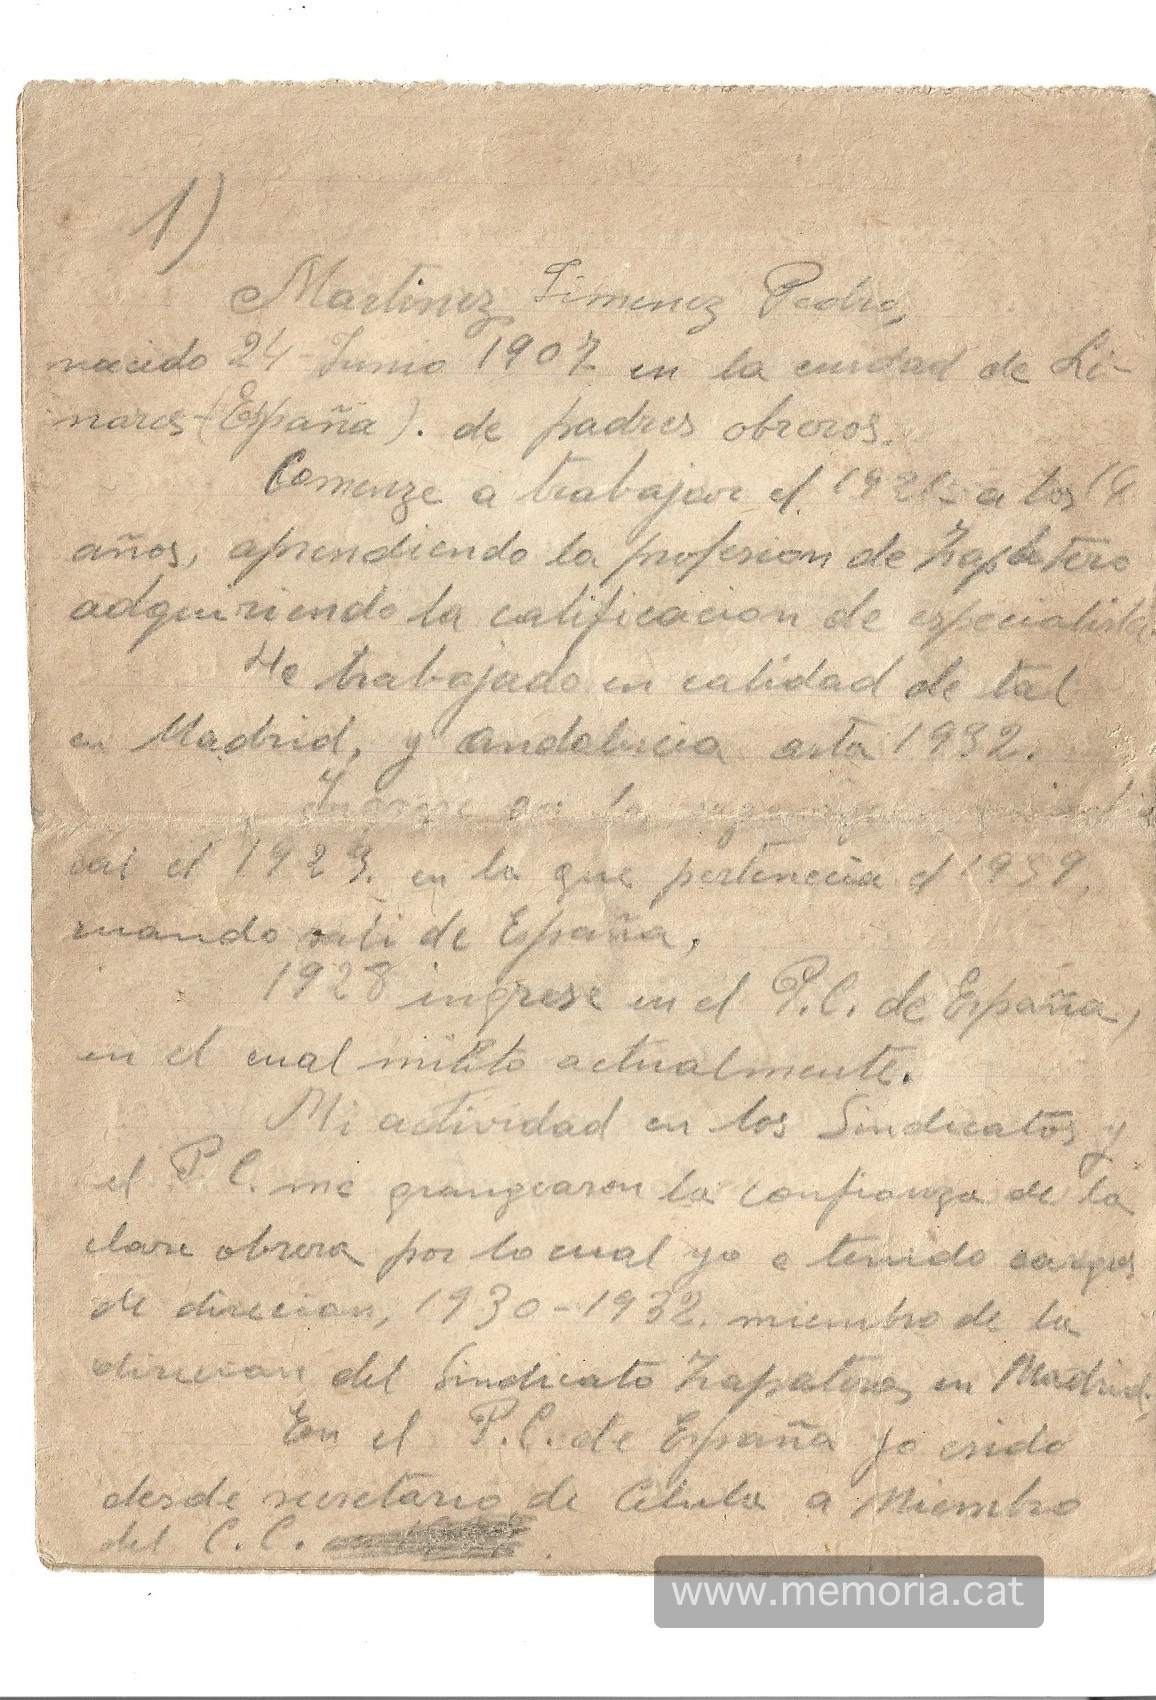 1)
Martinez Jimenez Pedro,
nacido 24 Junio 1907 en la ciudad de Li-
nares-(España). de padres obreros.
Comenze a trabajar el 1921 a los
años, aprendiendo la profesion de Zapatero
adquiriendo la calificacion de especialista.
He trabajado en calidad de tal
en Madrid, y andalucia asta 1932.
Ingrese en la
cal el 1923. en la que pertenecia el 1939,
cuando sali de España,
1928 ingrese en el P.C. de España,
en el cual milito actualmente.
Mi actividad en los Sindicatos y
el P.C. me grangearon la confianza de la
clase obrera por lo cual yo e tenido cargos
de direcion, 1930-1932. miembro de la
direcion del Sindicato Zapateros en Madrid.
En el P.C. de España yo esido
desde secretario de Celula a Miembro
del C.C.
www.memoria.cat